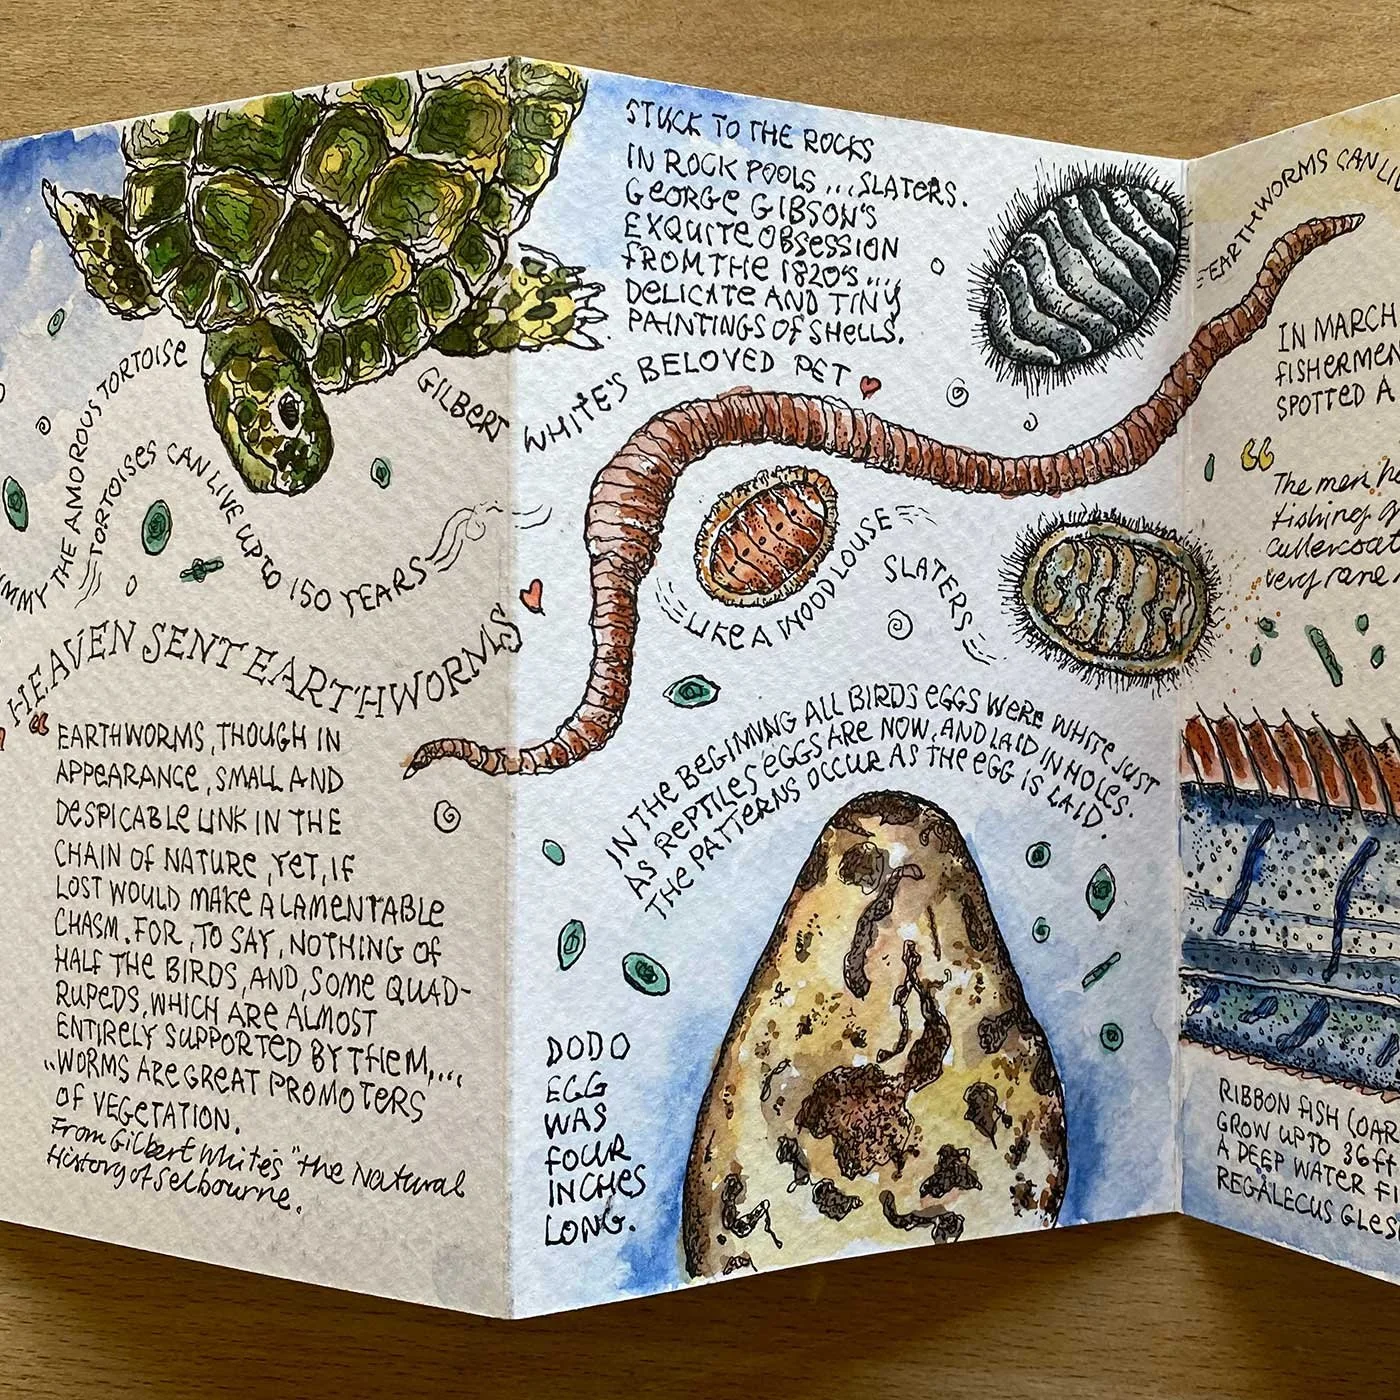 IMMY THE AMOROUS TORTOISE
GILBERT WHITE'S BELOVED PET
TORTOISES CAN LIVE UP TO 150 YEARS
HEAVEN SENT EARTHWORMS
“EARTHWORMS, THOUGH IN
APPEARANCE, SMALL AND
DESPICABLE LINK IN THE
CHAIN OF NATURE, YET, IF
LOST WOULD MAKE A LAMENTABLE
CHASM. FOR, TO SAY, NOTHING OF
HALF THE BIRDS, AND, SOME QUAD-
RUPEDS, WHICH ARE ALMOST
ENTIRELY SUPPORTED BY THEM,...
"WORMS ARE GREAT PROMOTERS
OF VEGETATION.
From Gilbert White's "the Natural
History of Selbourne.
STUCK TO THE ROCKS
IN ROCK POOLS ... SLATERS.
GEORGE GIBSON'S
EXQUITE OBSESSION
FROM THE 1820'S ....
DELICATE AND TINY
PAINTINGS OF SHELLS.
LIKE A WOOD LOUSE
SLATERS
IN THE BEGINNING ALL BIRDS EGGS WERE WHITE JUST
AS REPTILES EGGS ARE NOW, AND LAID IN HOLES.
THE PATTERNS OCCUR AS THE EGG IS LAID.
DODO
EGG
WAS
FOUR
INCHES
LONG.
EARTHWORMS CAN LI
IN MARCH
FISHERMEN
SPOTTED A
“The men
fishing
Cullercoat
very rare
RIBBON FISH (OAR
GROW UP TO 36 ft
A DEEP WATER FI
REGALECUS GLES